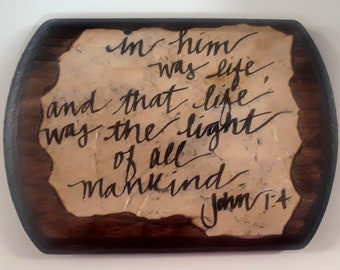 in him
was life,
and that life
was the light
of all
mankind
John 1:4